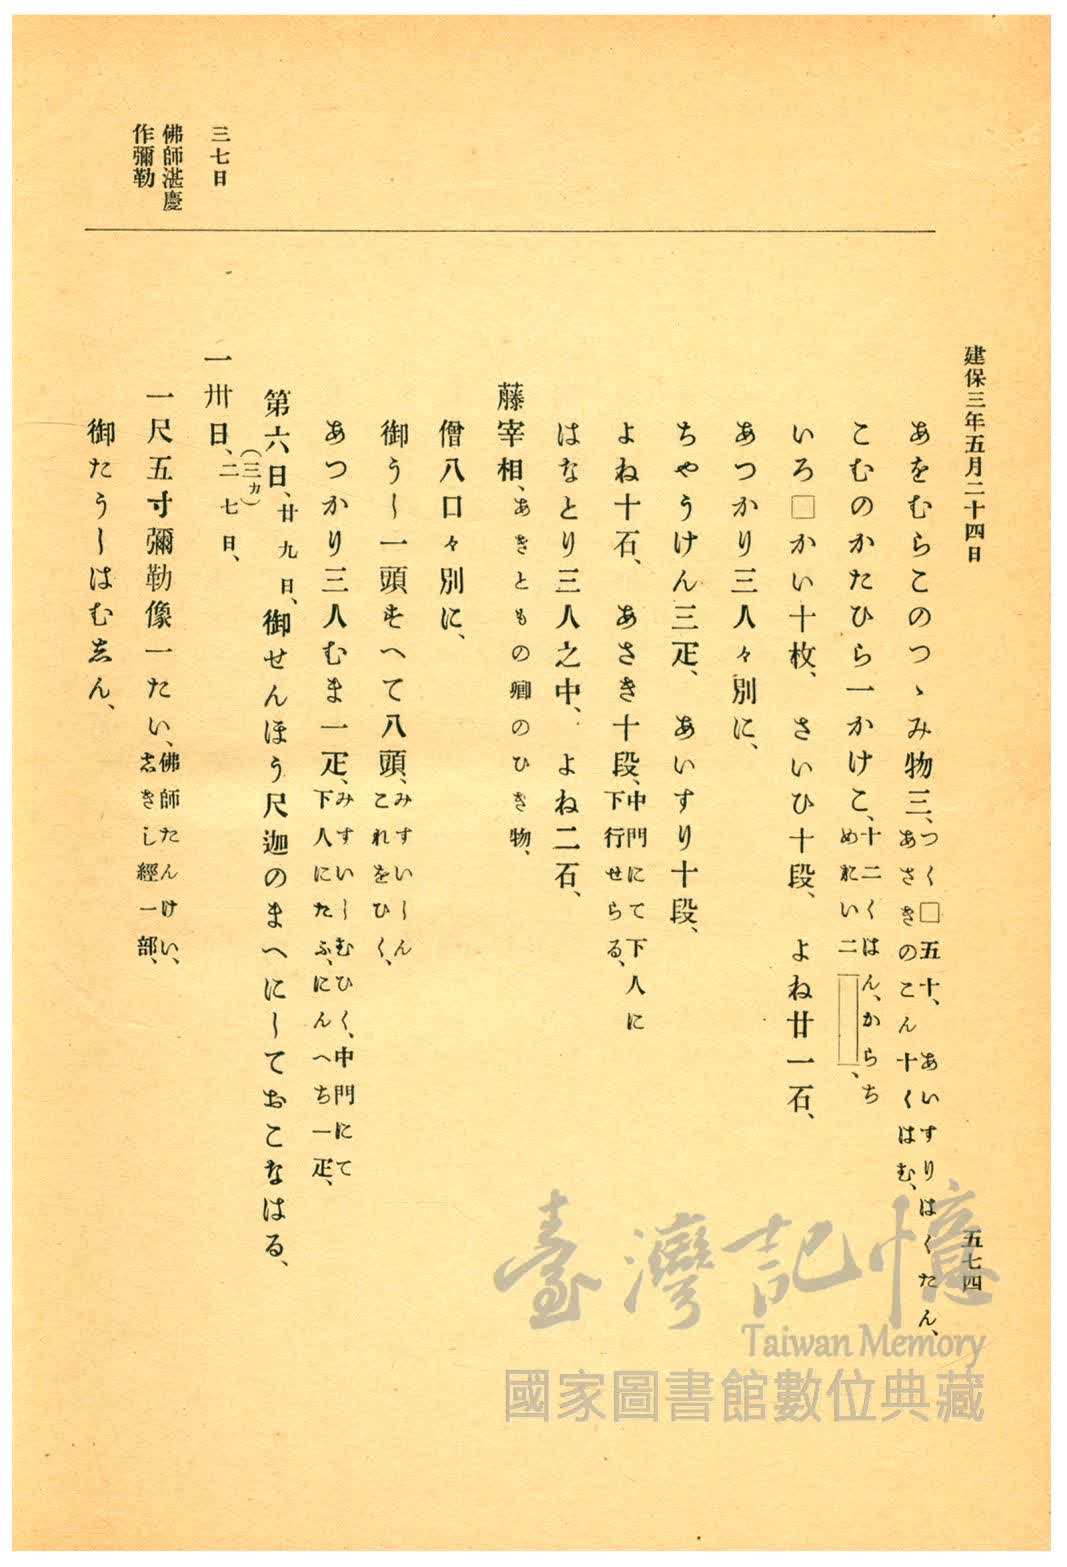 建保三年五月二十四日
五七四
三七日
佛師湛慶
作彌勒
あをむらこのつゝみ物三、
つく□五十、あいすりはくたん、
あさきのこん十くはむ、
こむのかたひら一かけこ、
十二くはん、からち
めれい二
いろ□かい十枚、さいひ十段、よね廿一石、
あつかり三人々別に、
ちやうけん三疋、あいすり十段、
よね十石、あさき十段、
中門にて下人に
下行せらる、
はなとり三人之中、よね二石、
藤宰相、あきともの卿のひき物、
僧八口々別に、
御うし一頭そへて八頭、
みすいしん
これをひく、
あつかり三人むま一疋、
みすいしむひく、中門にて
下人にたふ、にんへち一疋、
第六日、廿九日、御せんほう尺迦のまへにしておこなはる、
一卅日、二七日、
(三カ)
一尺五寸彌勒像一たい、
佛師たんけい、
志きし經一部、
御たうしはむゑん、
臺灣記憶
Taiwan Memory
國家圖書館數位典藏